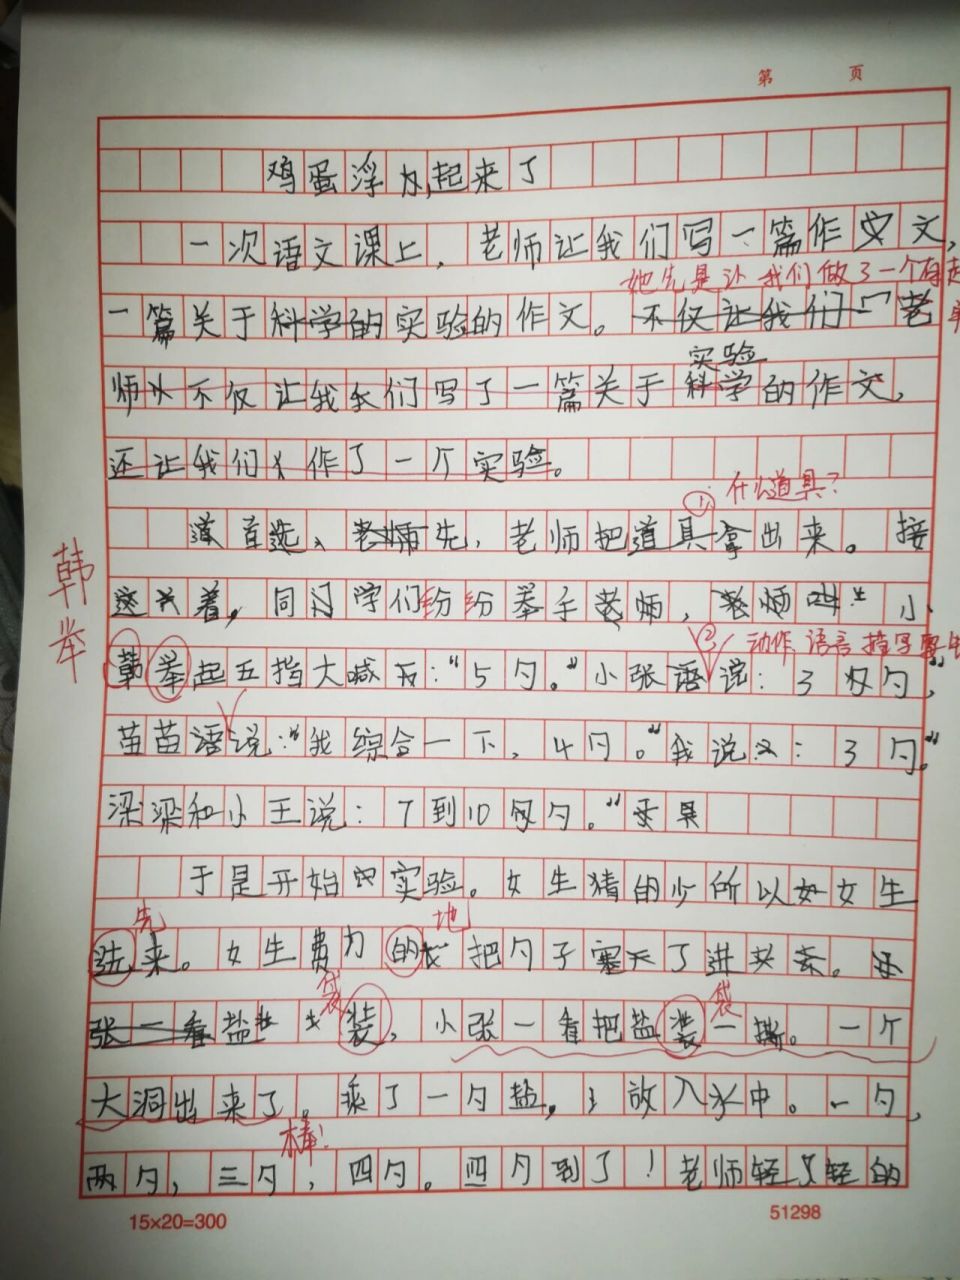 第 页
鸡蛋浮起来了
一次语文课上，老师让我们写一篇作文，
她先是让我们做了一个有趣
一篇关于科学的实验的作文。不仅让我们一老
实验
师不仅让我们写了一篇关于科学的作文，
还让我们作了一个实验。
① 什么道具？
首选、老师先，老师把道具拿出来。接
韩举
着，同学们纷纷举手老师，老师叫 小
② 动作 语言 描写要生
韩举起五指大喊：“5勺。”小张语说：3勺，”
苗苗语说：“我综合一下，4勺。”我说：3勺。”
梁梁和小王说：7到10勺。”
于是开始实验。女生猜的少所以女生
先 地
选来。女生费力的把勺子塞了进去。
袋 袋
张一看盐 装，小张一看把盐装一撕。一个
大洞出来了。乘了一勺盐，放入水中。一勺，
棒！
两勺，三勺，四勺。四勺到了！老师轻轻的
15×20=300
51298